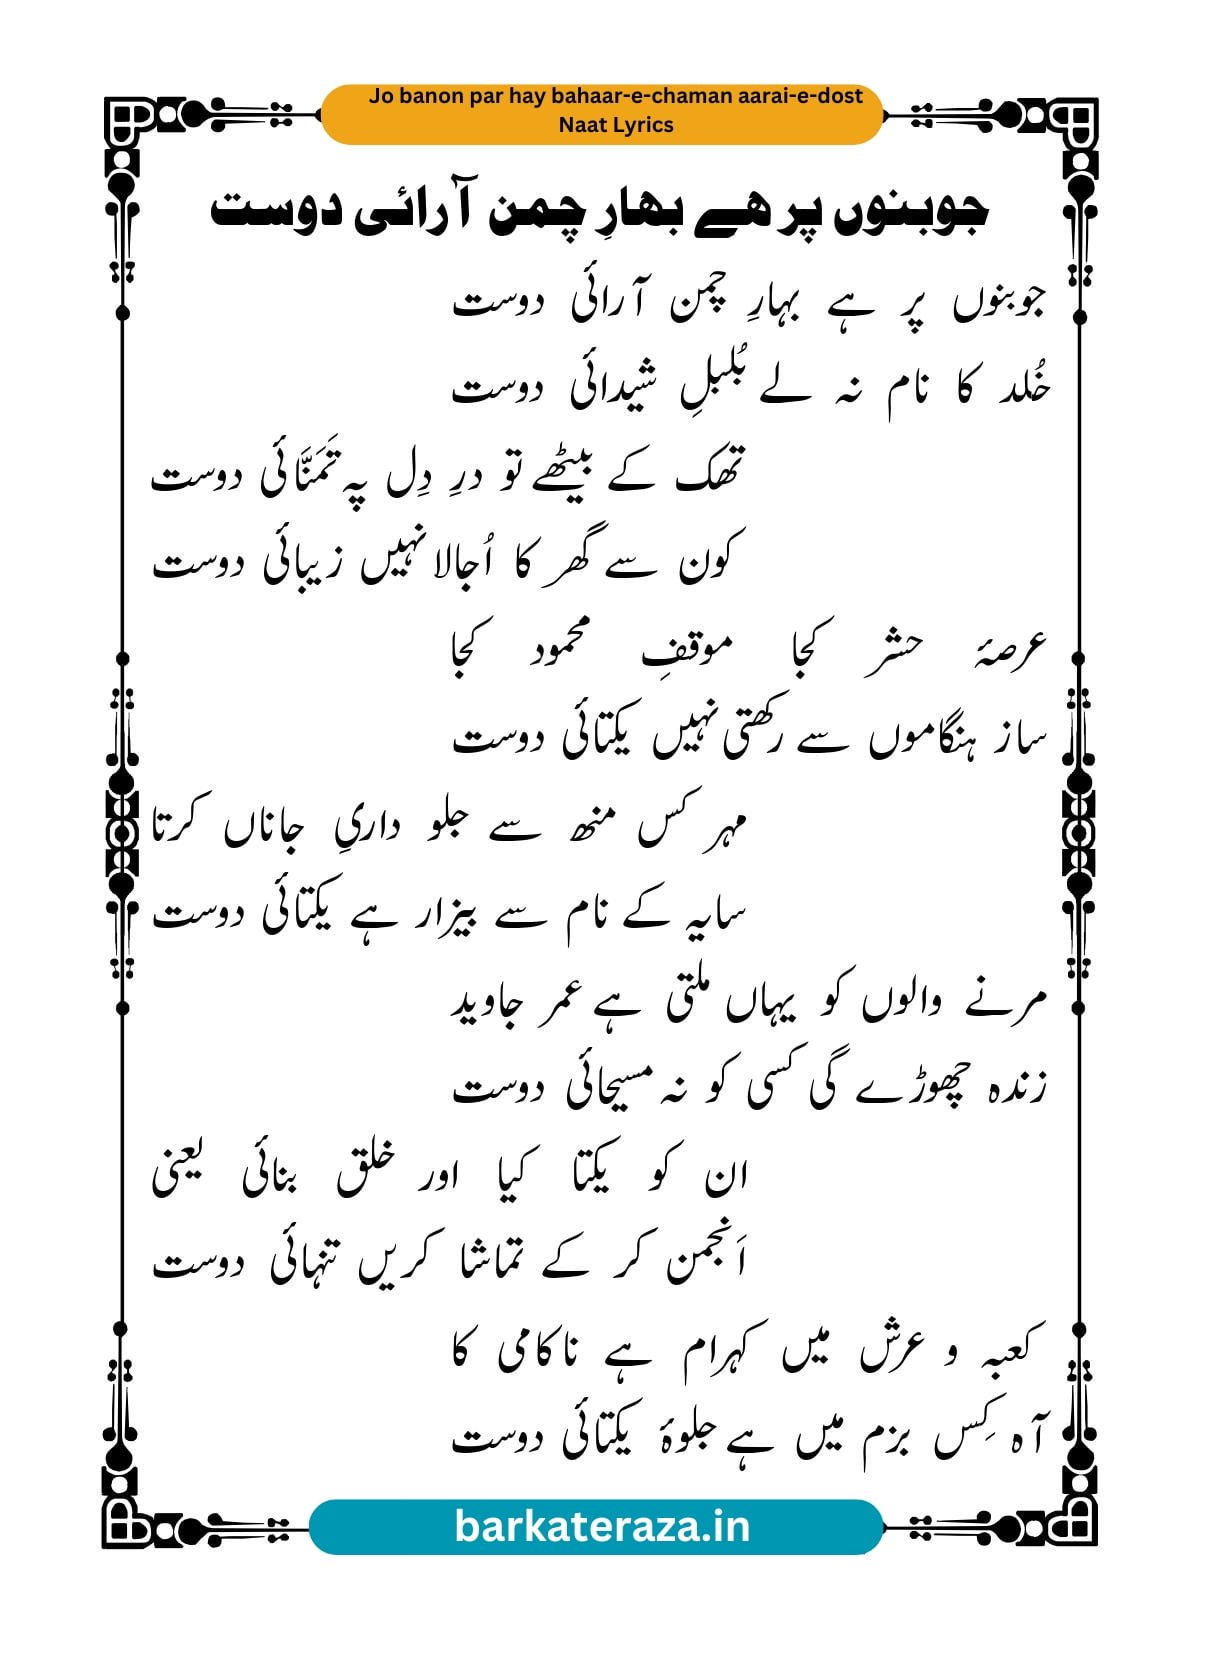 Jo banon par hay bahaar-e-chaman aarai-e-dost
Naat Lyrics
جوبنوں پر ھے بھارِ چمن آرائی دوست
جوبنوں پر ہے بہارِ چمن آرائی دوست
خُلد کا نام نہ لے بُلبلِ شیدائی دوست
تھک کے بیٹھے تو درِ دِل پہ تَمَنَّائی دوست
کون سے گھر کا اُجالا نہیں زیبائی دوست
عرصۂ حشر کجا موقفِ محمود کجا
ساز ہنگاموں سے رکھتی نہیں یکتائی دوست
مہر کس منھ سے جلو داریِ جاناں کرتا
سایہ کے نام سے بیزار ہے یکتائی دوست
مرنے والوں کو یہاں ملتی ہے عمر جاوید
زندہ چھوڑے گی کسی کو نہ مسیحائی دوست
ان کو یکتا کیا اور خلق بنائی یعنی
اَنجمن کر کے تماشا کریں تنہائی دوست
کعبہ و عرش میں کہرام ہے ناکامی کا
آہ کِس بزم میں ہے جلوۂ یکتائی دوست
barkateraza.in